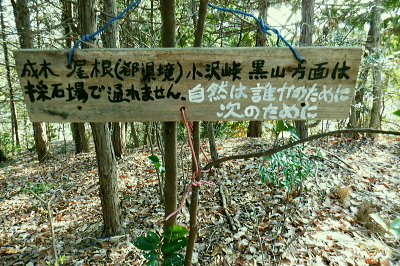 成木 尾根(都県境)小沢峠 黒山方面は
採石場で通れません。自然は誰かのために
次のために